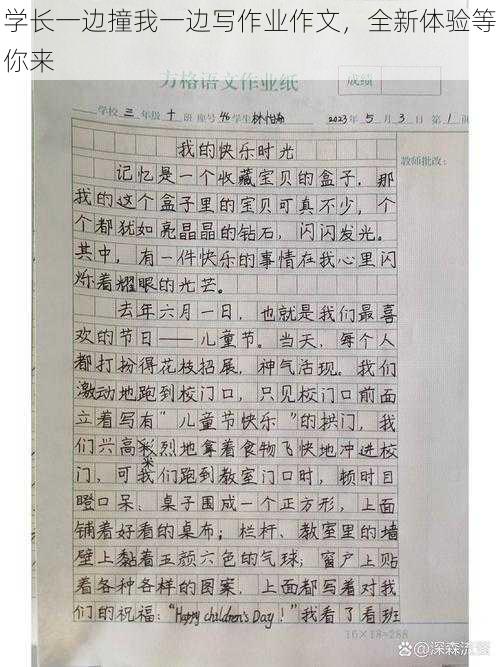 学长一边撞我一边写作业作文，全新体验等
你来
方格语文作业纸
成绩
学校 三 年级 十 班 座号 46 学生 林怡
2023年 5 月 3 日 第 1
我的快乐时光
教师批改：
记忆是一个收藏宝贝的盒子，那
我的这个盒子里的宝贝可真不少，个
个都犹如亮晶晶的钻石，闪闪发光。
其中，有一件快乐的事情在我心里闪
烁着耀眼的光芒。
去年六月一日，也就是我们最喜
欢的节日——儿童节。当天，每个人
都打扮得花枝招展，神气活现。我们
激动地跑到校门口，只见校门口前面
立着写有“儿童节快乐”的拱门，我
们兴高彩烈地拿着食物飞快地冲进校
采
门，可我们跑到教室门口时，顿时目
瞪口呆、桌子围成一个正方形，上面
铺着好看的桌布；栏杆、教室里的墙
壁上黏着五颜六色的气球；窗户上贴
着各种各样的图案，上面都写着对我
们的祝福：“Happy children's Day！”我看了看班
16×18=288
@深森流